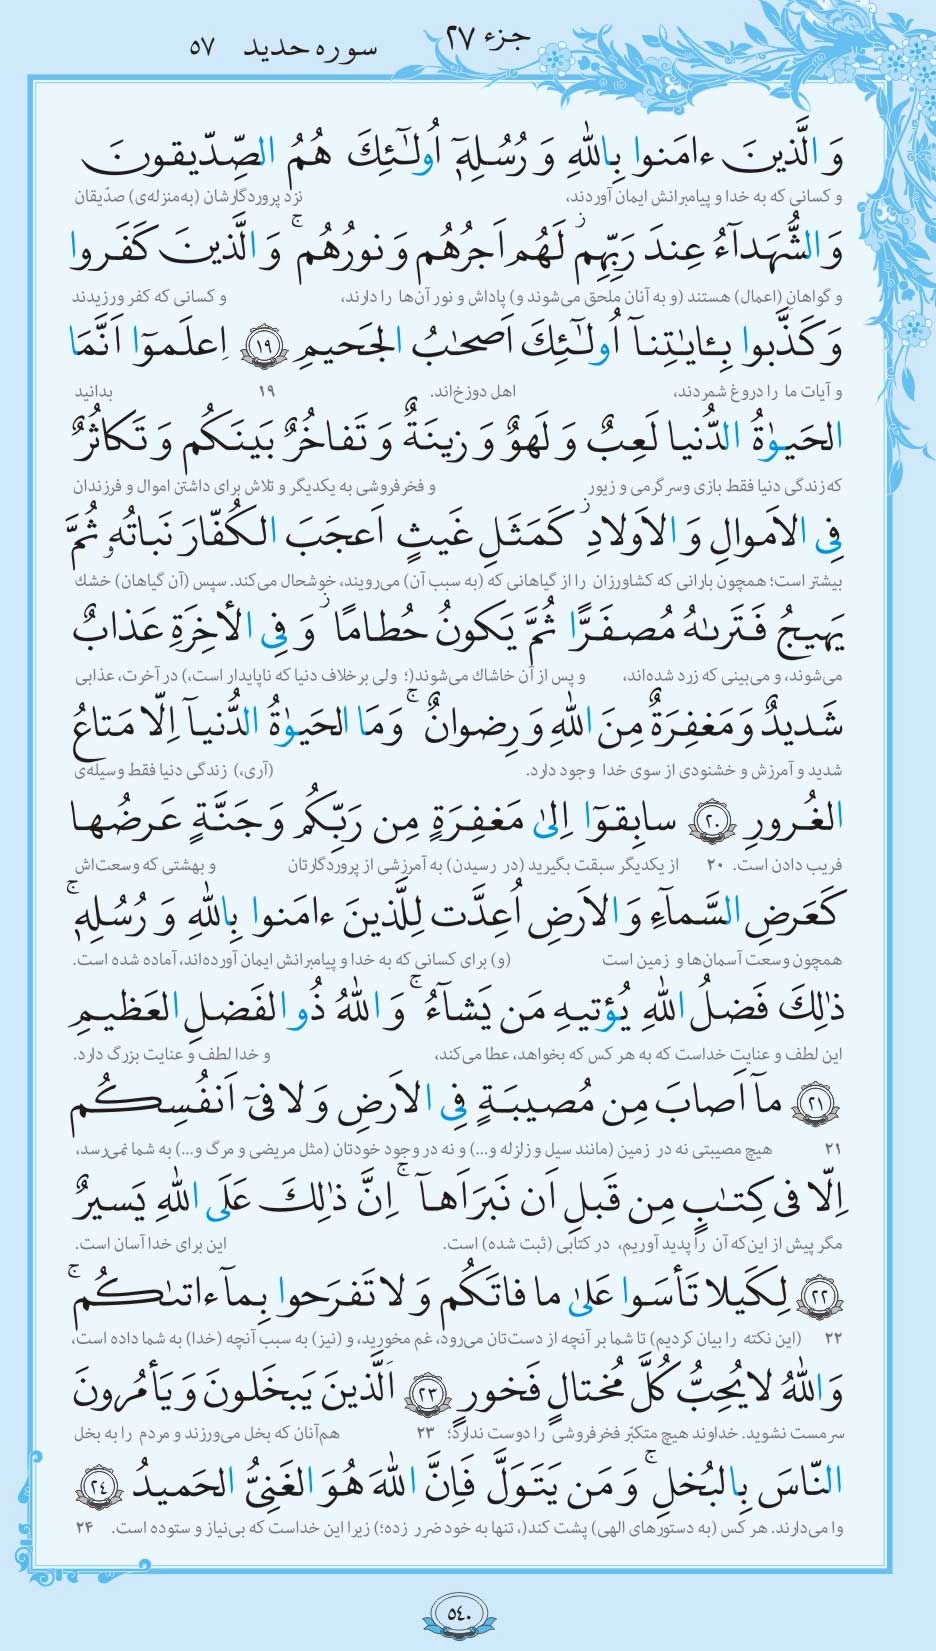 جزء ۲۷
سوره حدید ۵۷
وَ الَّذينَ ءامَنوا بِاللهِ وَ رُسُلِهٖٓ اُولٰٓئِكَ هُمُ الصِّدّيقونَ
و کسانی که به خدا و پیامبرانش ایمان آوردند، نزد پروردگارشان (به‌منزله‌ی) صدّیقان
وَ الشُّهَدآءُ عِندَ رَبِّهِم ز لَهُم اَجرُهُم وَ نورُهُم ج وَ الَّذينَ كَفَروا
و گواهان (اعمال) هستند (و به آنان ملحق می‌شوند و) پاداش و نور آن‌ها را دارند، و کسانی که کفر ورزیدند
وَ كَذَّبوا بِـٔايٰتِنآ اُولٰٓئِكَ اَصحٰبُ الجَحيمِ ﴿۱۹﴾ اِعلَموٓا اَنَّمَا
و آیات ما را دروغ شمردند، اهل دوزخ‌اند. ۱۹ بدانید
الحَيوٰةُ الدُّنيا لَعِبٌ وَ لَهوٌ وَ زينَةٌ وَ تَفاخُرٌ بَينَكُم وَ تَكاثُرٌ
که زندگی دنیا فقط بازی و سرگرمی و زیور و فخرفروشی به یکدیگر و تلاش برای داشتن اموال و فرزندان
فِى الاَموالِ وَ الاَولادِ ز كَمَثَلِ غَيثٍ اَعجَبَ الكُفّارَ نَباتُهٗ ثُمَّ
بیشتر است؛ همچون بارانی که کشاورزان را از گیاهانی که (به سبب آن) می‌رویند، خوشحال می‌کند. سپس (آن گیاهان) خشک
يَهيجُ فَتَرىٰهُ مُصفَرًّا ثُمَّ يَكونُ حُطامًا ز وَ فِى الأخِرَةِ عَذابٌ
می‌شوند، و می‌بینی که زرد شده‌اند، و پس از آن خاشاک می‌شوند(؛ ولی برخلاف دنیا که ناپایدار است،) در آخرت، عذابی
شَديدٌ وَ مَغفِرَةٌ مِنَ اللهِ وَ رِضوانٌ ج وَ مَا الحَيوٰةُ الدُّنيآ اِلّا مَتاعُ
شدید و آمرزش و خشنودی از سوی خدا وجود دارد. (آری،) زندگی دنیا فقط وسیله‌ی
الغُرورِ ﴿۲۰﴾ سابِقوٓا اِلىٰ مَغفِرَةٍ مِن رَبِّكُم وَ جَنَّةٍ عَرضُها
فریب دادن است. ۲۰ از یکدیگر سبقت بگیرید (در رسیدن) به آمرزشی از پروردگارتان و بهشتی که وسعت‌اش
كَعَرضِ السَّمآءِ وَ الاَرضِ اُعِدَّت لِلَّذينَ ءامَنوا بِاللهِ وَ رُسُلِهٖ ج
همچون وسعت آسمان‌ها و زمین است (و) برای کسانی که به خدا و پیامبرانش ایمان آورده‌اند، آماده شده است.
ذٰلِكَ فَضلُ اللهِ يُؤتيهِ مَن يَشآءُ ج وَ اللهُ ذُو الفَضلِ العَظيمِ
این لطف و عنایت خداست که به هر کس که بخواهد، عطا می‌کند، و خدا لطف و عنایت بزرگ دارد.
﴿۲۱﴾ مآ اَصابَ مِن مُصيبَةٍ فِى الاَرضِ وَ لا فىٓ اَنفُسِكُم
۲۱ هیچ مصیبتی نه در زمین (مانند سیل و زلزله و...) و نه در وجود خودتان (مثل مریضی و مرگ و...) به شما نمی‌رسد،
اِلّا فى كِتٰبٍ مِن قَبلِ اَن نَبرَاَهآ ج اِنَّ ذٰلِكَ عَلَى اللهِ يَسيرٌ
مگر پیش از این‌که آن را پدید آوریم، در کتابی (ثبت شده) است. این برای خدا آسان است.
﴿۲۲﴾ لِكَيلا تَأسَوا عَلىٰ ما فاتَكُم وَ لا تَفرَحوا بِمآ ءاتىٰكُم ج
۲۲ (این نکته را بیان کردیم) تا شما بر آنچه از دست‌تان می‌رود، غم مخورید، و (نیز) به سبب آنچه (خدا) به شما داده است،
وَ اللهُ لا يُحِبُّ كُلَّ مُختالٍ فَخورٍ ﴿۲۳﴾ اَلَّذينَ يَبخَلونَ وَ يَأمُرونَ
سرمست نشوید. خداوند هیچ متکبّر فخرفروشی را دوست ندارد؛ ۲۳ هم‌آنان که بخل می‌ورزند و مردم را به بخل
النّاسَ بِالبُخلِ ج وَ مَن يَتَوَلَّ فَاِنَّ اللهَ هُوَ الغَنِىُّ الحَميدُ ﴿۲٤﴾
وا می‌دارند. هر کس (به دستورهای الهی) پشت کند(، تنها به خود ضرر زده؛) زیرا این خداست که بی‌نیاز و ستوده است. ۲۴
٥٤٠